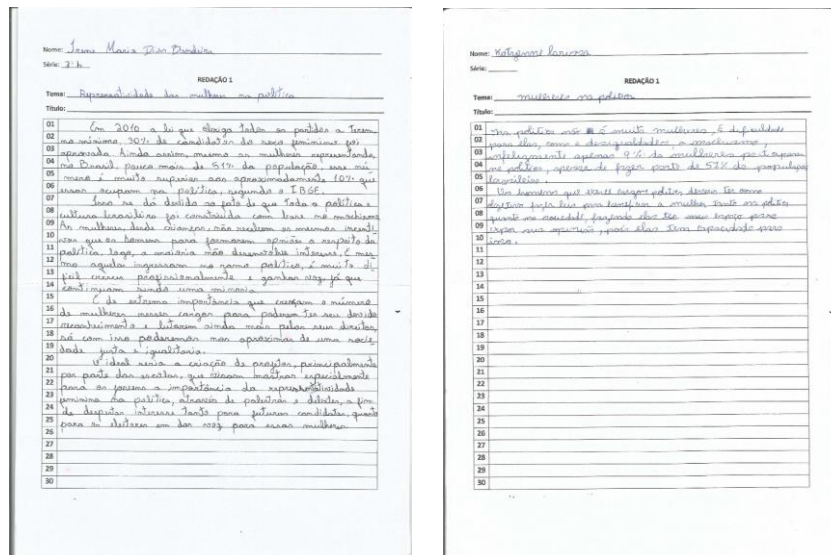 Nome: Irene Maria Dias Bandeira
Série: 3º b
REDAÇÃO 1
Tema: Representatividade das mulheres na política
Título:
01 Em 2010 a lei que obriga todos os partidos a terem
02 no mínimo, 30% de candidatos do sexo feminino foi
03 aprovada. Ainda assim, mesmo as mulheres representando,
04 no Brasil, pouco mais de 51% da população, esse nú-
05 mero é muito superior aos aproximadamente 10% que
06 essas ocupam na política, segundo o IBGE.
07 Isso se dá devido ao fato de que toda a política e
08 cultura brasileira foi construída com base no machismo.
09 As mulheres, desde crianças, não recebem os mesmos incenti-
10 vos que os homens para formarem opiniões a respeito da
11 política, logo, a maioria não desenvolve interesse. E mes-
12 mo aquelas ingressam no ramo político, é muito di-
13 fícil crescer profissionalmente e ganhar voz, já que
14 continuam sendo uma minoria.
15 É de extrema importância que cresçam o número
16 de mulheres nesses cargos para poderem ter seu devido
17 reconhecimento e lutarem ainda mais pelos seus direitos,
18 só com isso poderemos nos aproximar de uma socie-
19 dade justa e igualitária.
20 O ideal seria a criação de projetos, principalmente
21 por parte das escolas, que visam mostrar especialmente
22 para os jovens a importância da representatividade
23 feminina na política, através de palestras e debates, a fim
24 de despertar interesse tanto para futuras candidatas, quanto
25 para os eleitores em dar voz para essas mulheres.
26
27
28
29
30
Nome: Larissa
Série:
REDAÇÃO 1
Tema: mulheres na politica
Título:
01 Na politica não é muito mulheres, E dificuldade
02 para elas, como a desigualdades, o machismo,
03 infelizmente apenas 9% da mulheres participam
04 na politica, apesar de fazer parte de 52% da população
05 brasileira.
06 Os homens que cargos politicos, devem ter como
07 objetivo fazer leis para beneficiar a mulher tanto na politica
08 quanto na sociedade, fazendo elas ter seus espaço para
09 expor sua opinião, pois elas tem capacidade para
10 isso.
11
12
13
14
15
16
17
18
19
20
21
22
23
24
25
26
27
28
29
30